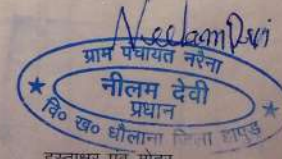 Neelam Devi
ग्राम पंचायत नरैना
नीलम देवी
प्रधान
वि० ख० धौलाना जिला हापुड़
हस्ताक्षर एवं मोहर